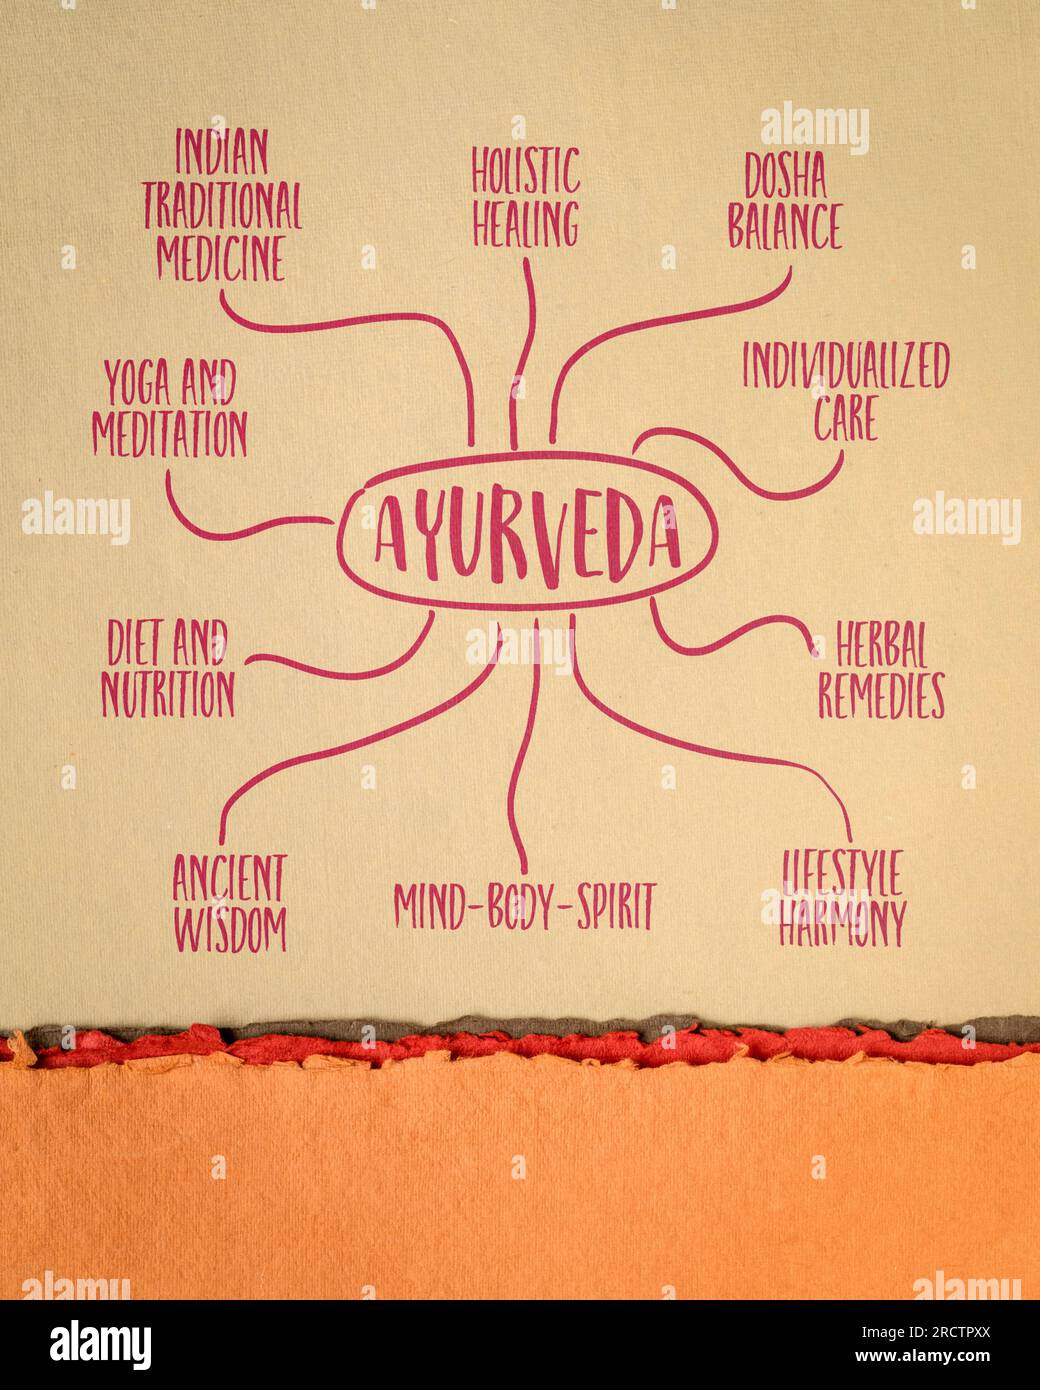 INDIAN
TRADITIONAL
MEDICINE
HOLISTIC
HEALING
DOSHA
BALANCE
YOGA AND
MEDITATION
INDIVIDUALIZED
CARE
AYURVEDA
DIET AND
NUTRITION
HERBAL
REMEDIES
ANCIENT
WISDOM
MIND-BODY-SPIRIT
LIFESTYLE
HARMONY
alamy
alamy
alamy
alamy
alamy
alamy
alamy
a
a
a
a
alamy
Image ID: 2RCTPXX
www.alamy.com